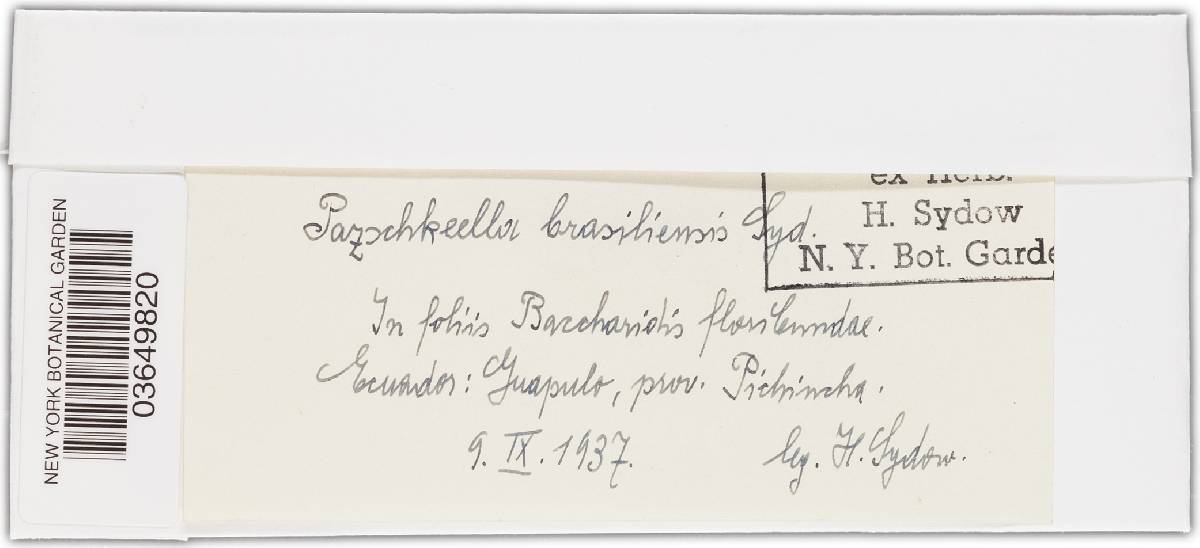 NEW YORK BOTANICAL GARDEN
03649820
ex Herb.
H. Sydow
N. Y. Bot. Garde
Pazschkeella brasiliensis Syd.
In foliis Baccharidis floribundae.
Ecuador: Guapulo, prov. Pichincha.
9. IX. 1937. leg. H. Sydow.